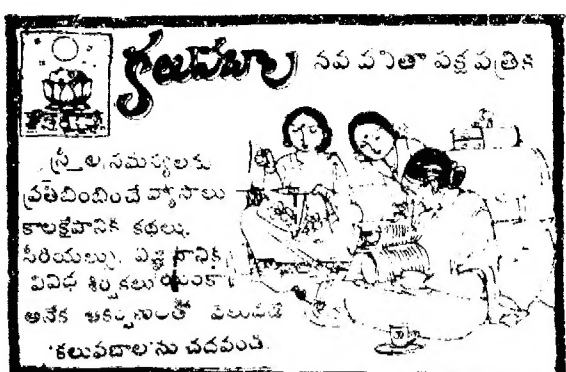 కలువబాల నవ వనితా పక్ష పత్రిక
స్త్రీల సమస్యలకు
ప్రతిబింబించే వ్యాసాలు
కాలక్షేపానికి కథలు,
సీరియల్సు,
వివిధ శీర్షికలు ఇంకా
అనేక ఆకర్షణలతో వెలువడే
'కలువబాల'ను చదవండి.